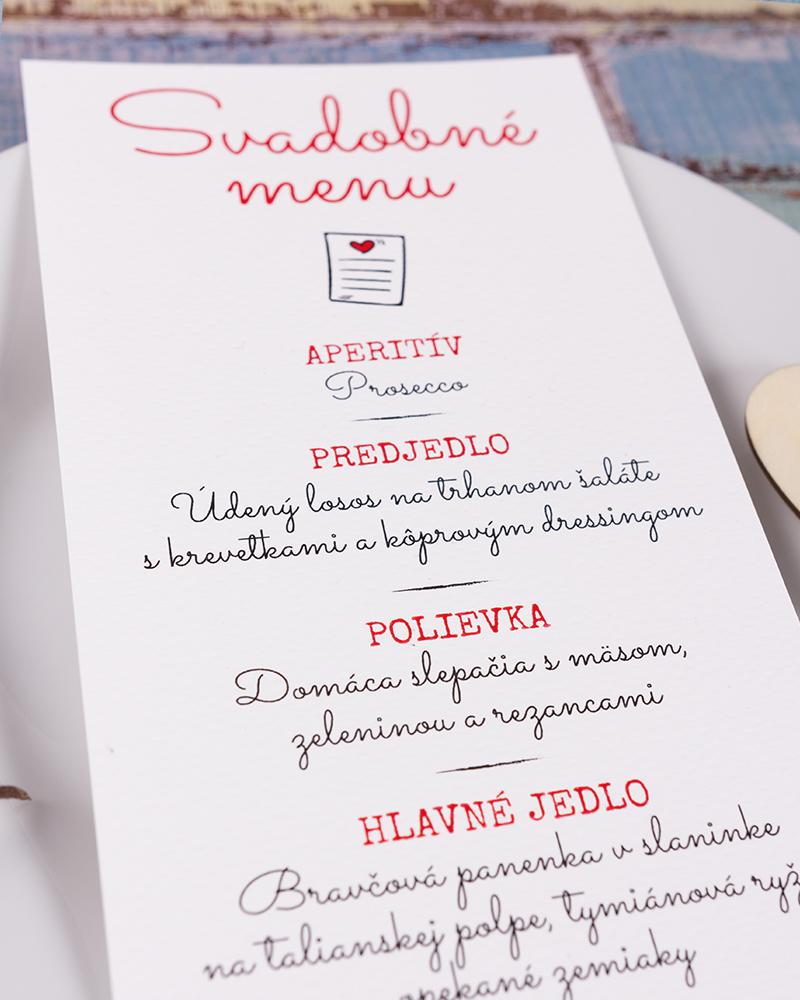 Svadobné
menu
APERITÍV
Prosecco
PREDJEDLO
Údený losos na trhanom šaláte
s krevetkami a kôprovým dressingom
POLIEVKA
Domáca slepačia s mäsom,
zeleninou a rezancami
HLAVNÉ JEDLO
Bravčová panenka v slaninke
na talianskej polpe, tymiánová
zemiaky